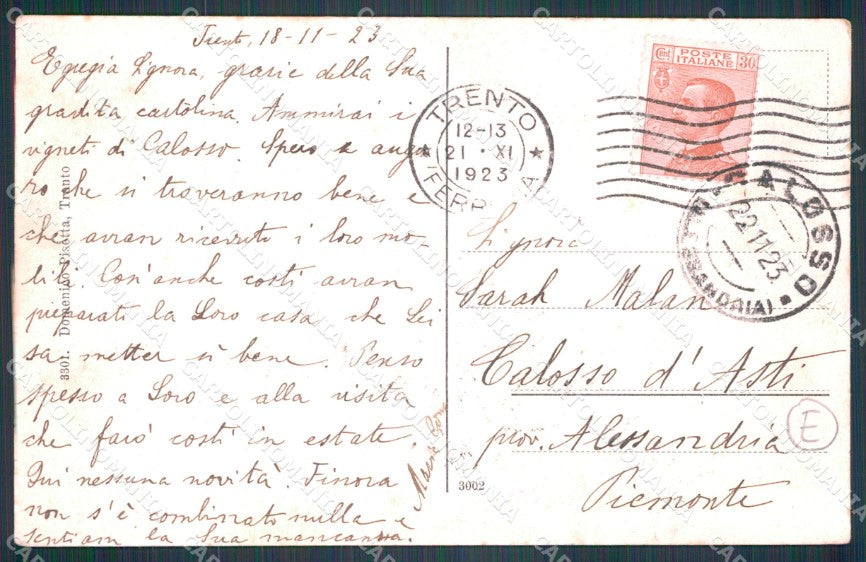 Trento, 18-11-23
Egregia Signora, grazie della Sua
gradita cartolina. Ammirai i
vigneti di Calosso. Spero e augu
ro che si troveranno bene e
che avran ricevuti i loro mo-
bili. Cos' anche costì avran
preparati la Loro casa che Lei
sa metter sì bene. Penso
spesso a Loro e alla visita
che farò costì in estate.
Qui nessuna novità. Finora
non s'è combinato nulla e
sentiam la Sua mancanza.
3301. Domenico Pisetta, Trento
3002
TRENTO
12-13
21 · XI
1923
FERR
POSTE
ITALIANE
Cent. 30
CALOSSO
22.11.23
(ALESSANDRIA)
Signora
Sarah Malan
Calosso d'Asti
prov. Alessandria
Piemonte
E
CARTOLINOMANIA